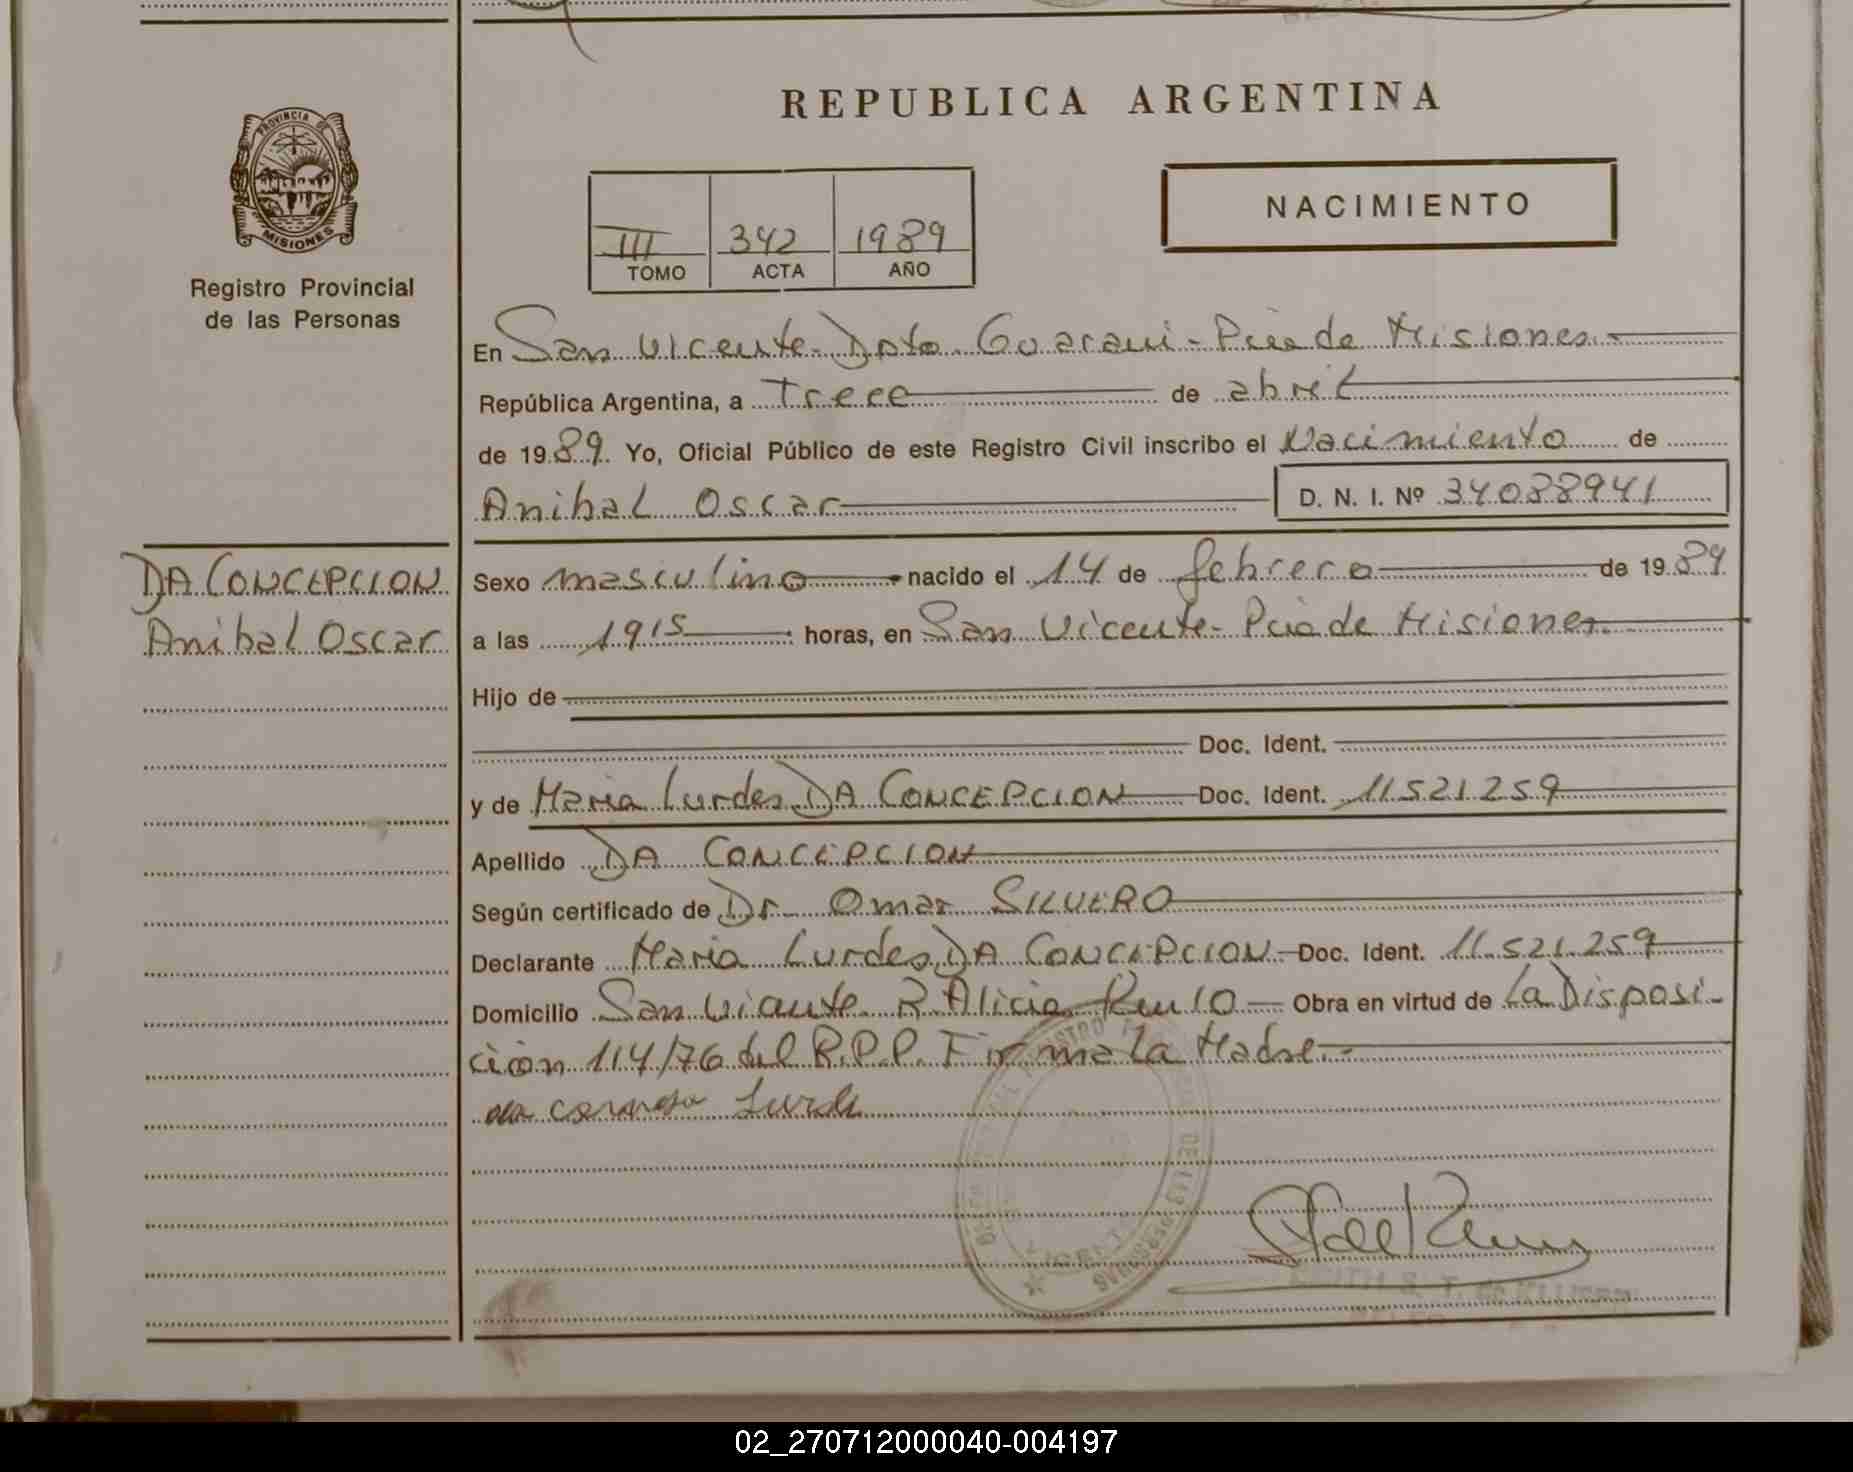 REPUBLICA ARGENTINA
PROVINCIA DE
MISIONES
Registro Provincial
de las Personas
NACIMIENTO
III 342 1989
TOMO ACTA AÑO
En San Vicente-Dpto Guarani-Pcia de Misiones.-
República Argentina, a Trece de abril
de 1989. Yo, Oficial Público de este Registro Civil inscribo el Nacimiento de
Anibal Oscar D. N. I. Nº 34088941
DA CONCEPCION
Anibal Oscar
Sexo masculino nacido el 14 de febrero de 1989
a las 1915 horas, en San Vicente-Pcia de Misiones.
Hijo de
Doc. Ident.
y de Maria Lurdes DA CONCEPCION Doc. Ident. 11.521.259
Apellido DA CONCEPCION
Según certificado de Dr. Omar SILVERO
Declarante Maria Lurdes DA CONCEPCION Doc. Ident. 11.521.259
Domicilio San Vicente Obra en virtud de La Disposi-
ción 114/76 del R.P.P. Firma la Madre.-
DE LAS PERSONAS
02_270712000040-004197